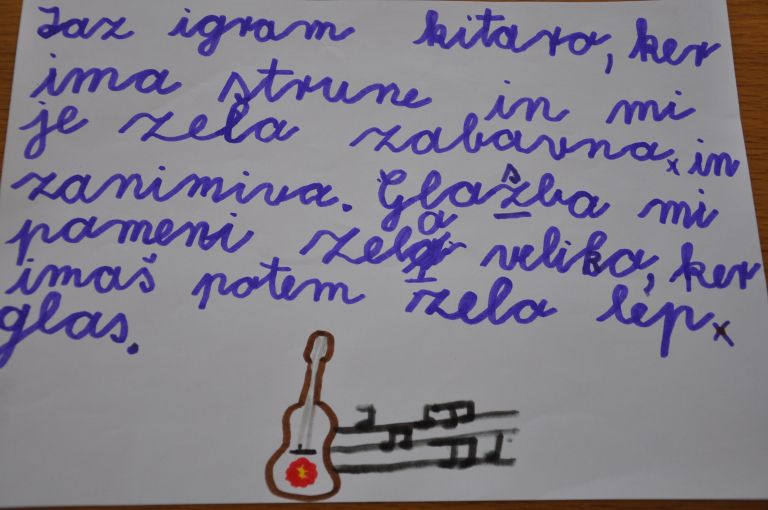 Jaz igram kitaro, ker
ima strune in mi
je zelo zabavna in
zanimiva. Glasba mi
pomeni zelo veliko, ker
imaš potem zelo lep
glas.